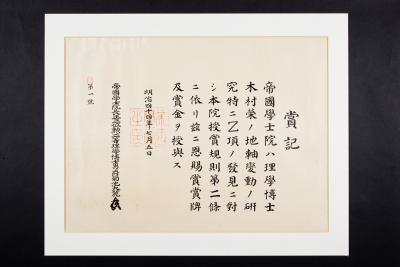 賞記
帝國學士院ハ理學博士
木村榮ノ地軸變動ノ研
究特ニZ項ノ發見ニ對
シ本院授賞規則第二條
ニ依リ茲ニ恩賜賞賞牌
及賞金ヲ授與ス
明治四十四年七月五日
帝國學士院長從二位勳一等理學博士男爵菊池大麓
第一號